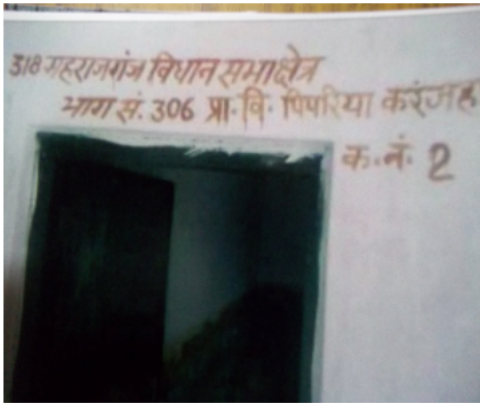 318 महराजगंज विधान सभा क्षेत्र
भाग सं. 306 प्रा. वि. पिपरिया करंजहा
क. नं. 2